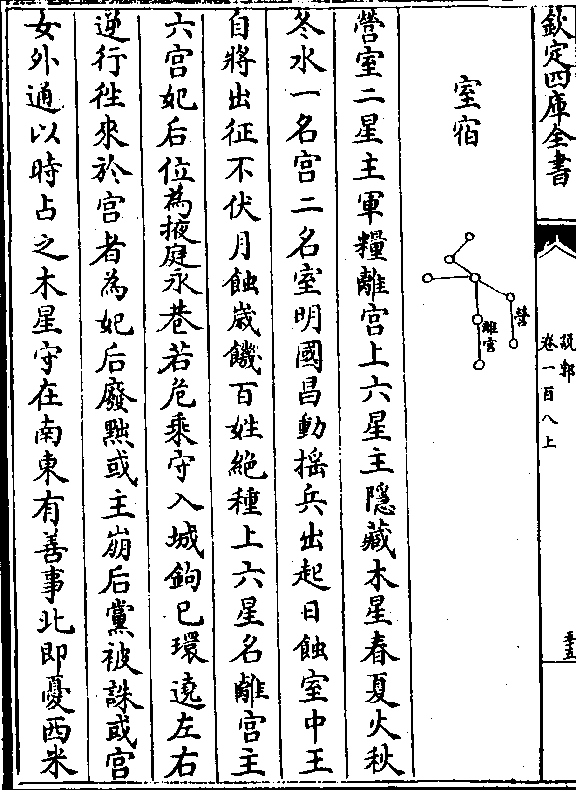 欽定四庫全書
說郛
卷一百八上
室宿
營
離宮
營室二星主軍糧離宮上六星主隱藏木星春夏火秋
冬水一名宮二名室明國昌動搖兵出起日蝕室中王
自將出征不伏月蝕嵗饑百姓絶種上六星名離宮主
六宮妃后位為掖庭永巷若危乘守入城鉤已環遶左右
逆行徃來於宮者為妃后廢黜或主崩后黨被誅或宮
女外通以時占之木星守在南東有善事北即憂西米